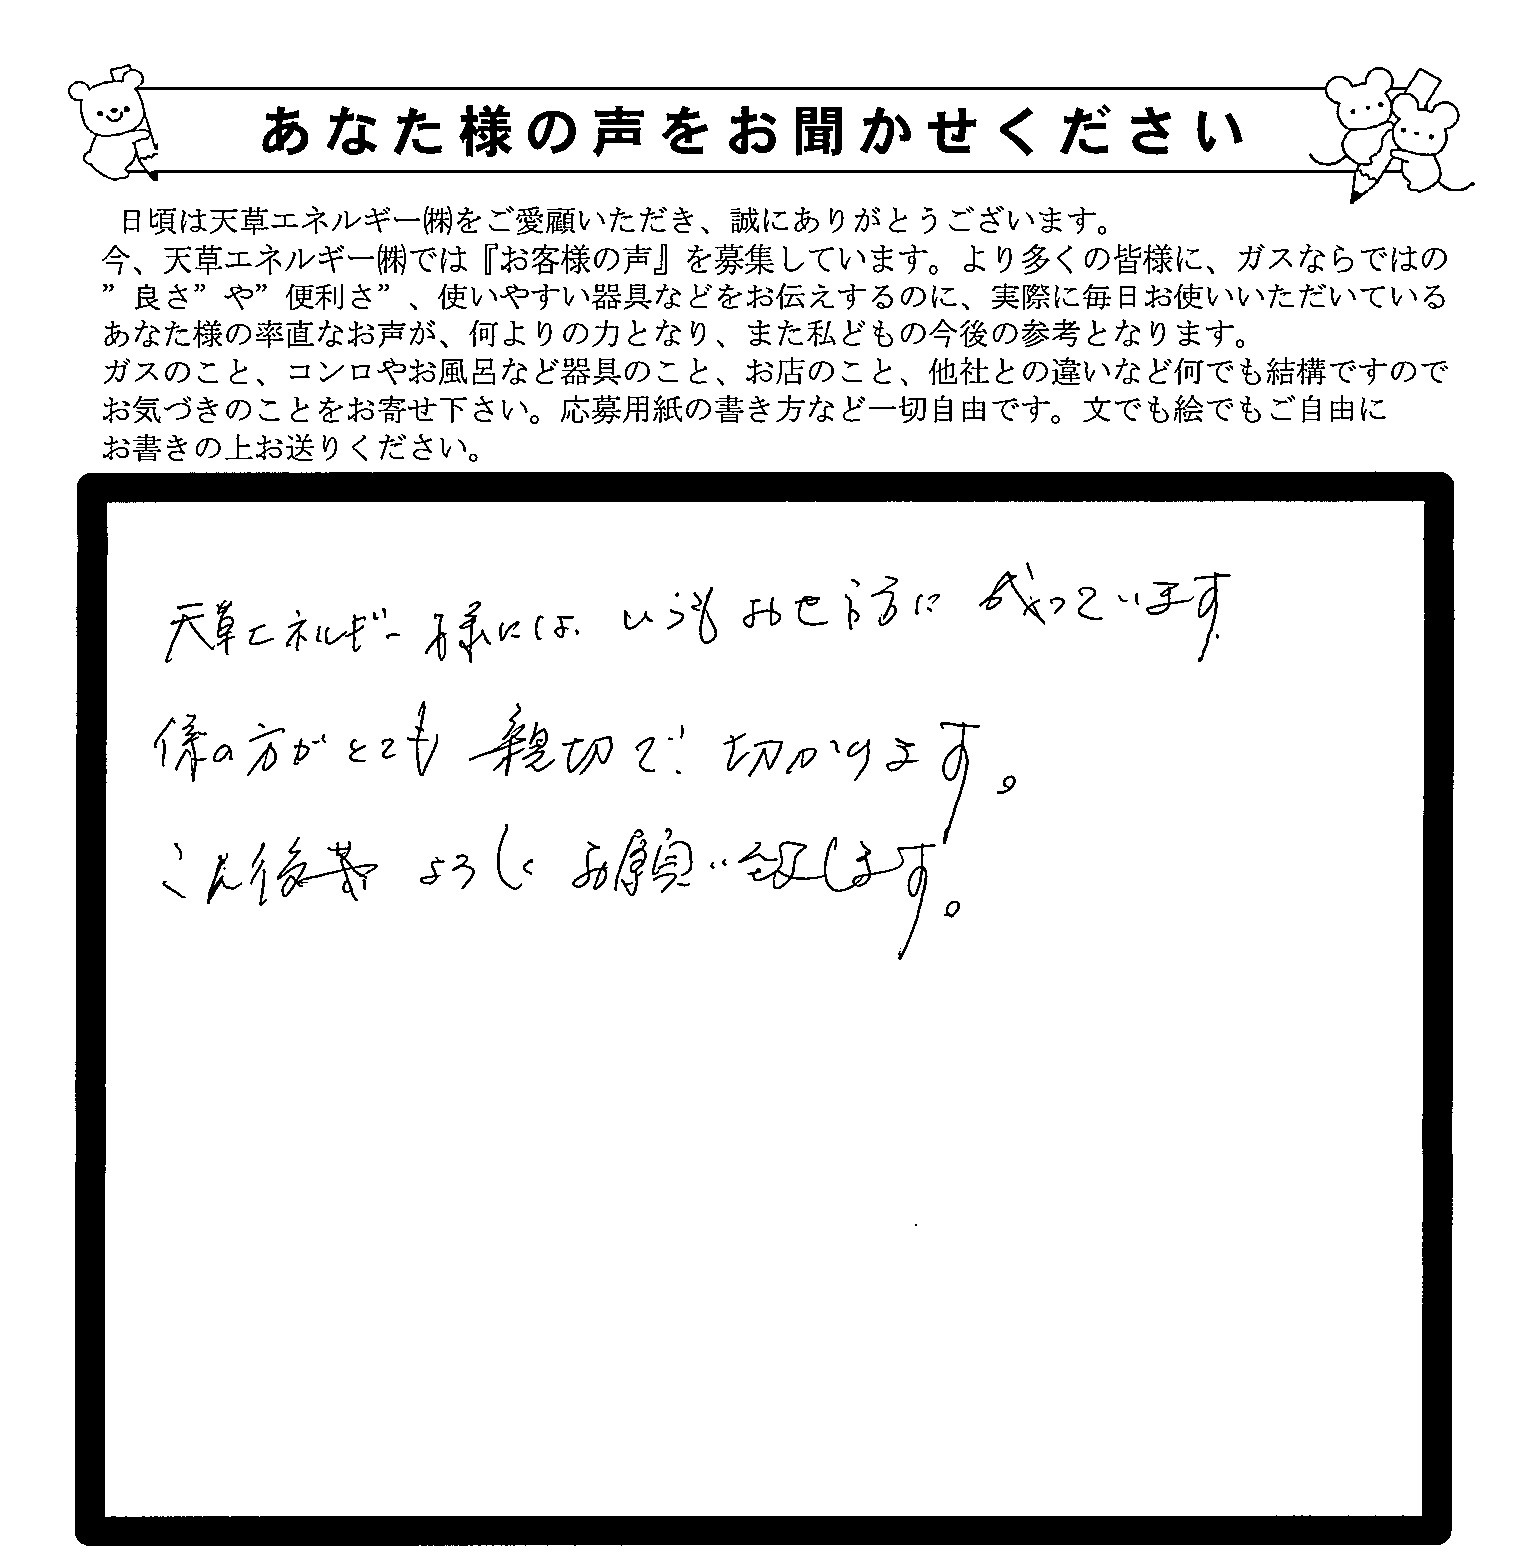 あなた様の声をお聞かせください
日頃は天草エネルギー㈱をご愛顧いただき、誠にありがとうございます。
今、天草エネルギー㈱では『お客様の声』を募集しています。より多くの皆様に、ガスならではの
”良さ”や”便利さ”、使いやすい器具などをお伝えするのに、実際に毎日お使いいただいている
あなた様の率直なお声が、何よりの力となり、また私どもの今後の参考となります。
ガスのこと、コンロやお風呂など器具のこと、お店のこと、他社との違いなど何でも結構ですので
お気づきのことをお寄せ下さい。応募用紙の書き方など一切自由です。文でも絵でもご自由に
お書きの上お送りください。
天草エネルギー様には、いつもお世話に成っています
係の方がとても親切で、助かります。
今後共よろしくお願い致します。